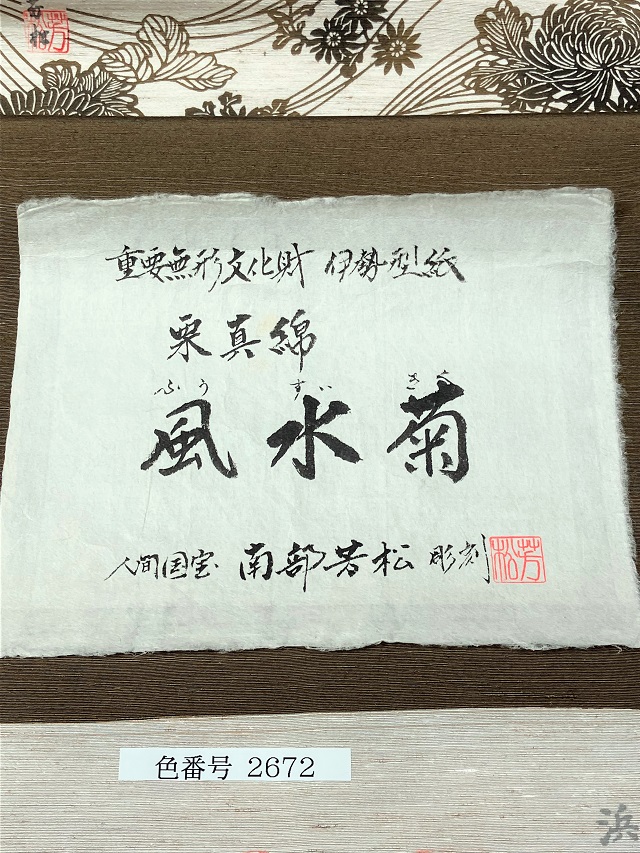 芳
重要無形文化財 伊勢型紙
栗真綿
ふう すい きく
風水菊
人間国宝 南部芳松 彫刻
芳松
色番号 2672
浜